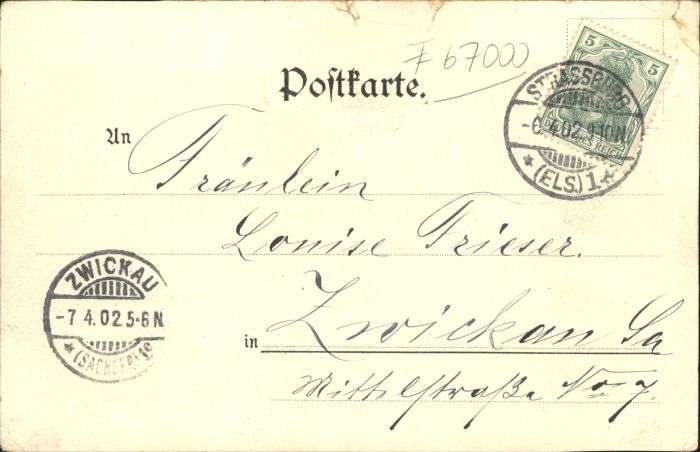 F 67000
Postkarte.
5 5
STRASSBURG
-6.4.02.9-10N
REICH
*(ELS.)1*
An
Fräulein
Louise Frieser.
ZWICKAU
-7 4.02.5-6N
*(SACHSEN)
in Zwickau Sa
Mittelstraße No 7.